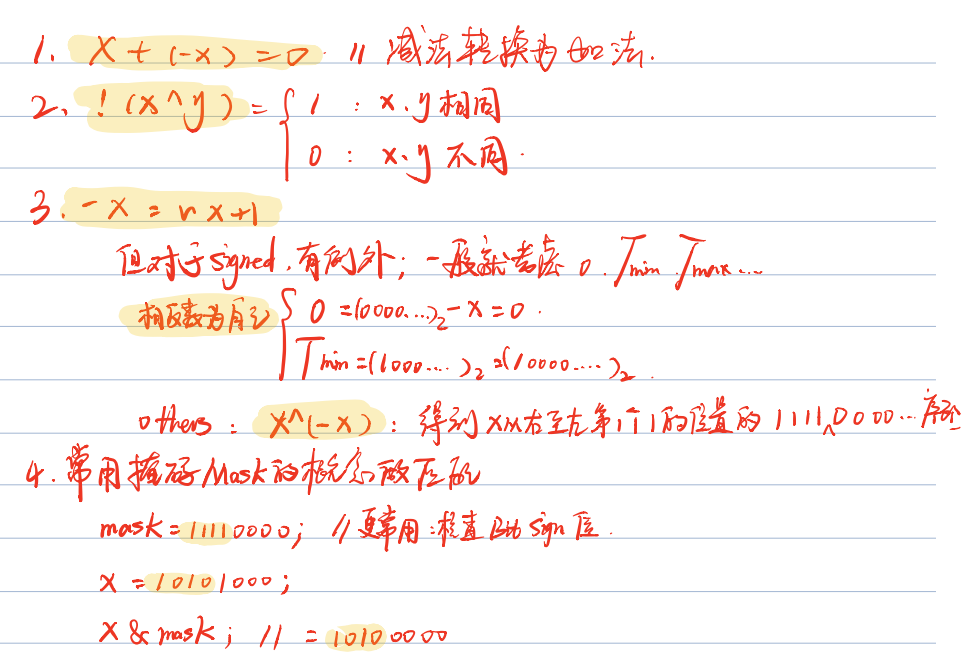 1. x + (-x) = 0 // 减法转换为加法.
2、!(x^y) = { 1 : x、y 相同
0 : x、y 不同.
3. -x = ~x+1
但对于signed,有例外; 一般就考虑 0. Tmin Tmax...
相反数为自己 { 0 = (0000...)₂ -x = 0.
Tmin = (1000....)₂ = (10000....)₂.
others : x^(-x) : 得到x从右至左第1个1的位置的 1111^0000...序列
4. 常用掩码Mask的概念做匹配
mask = 11110000; // 更常用:检查 sign 位.
x = 10101000;
x & mask; // = 10100000